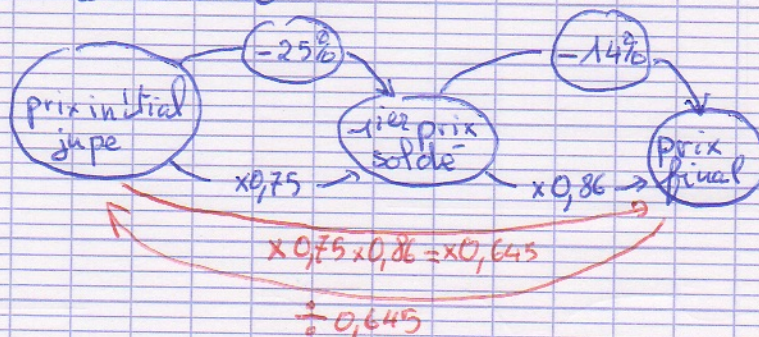 -25%
-14%
prix initial
jupe
1ier prix
soldé
prix
final
×0,75
×0,86
×0,75×0,86=×0,645
÷0,645